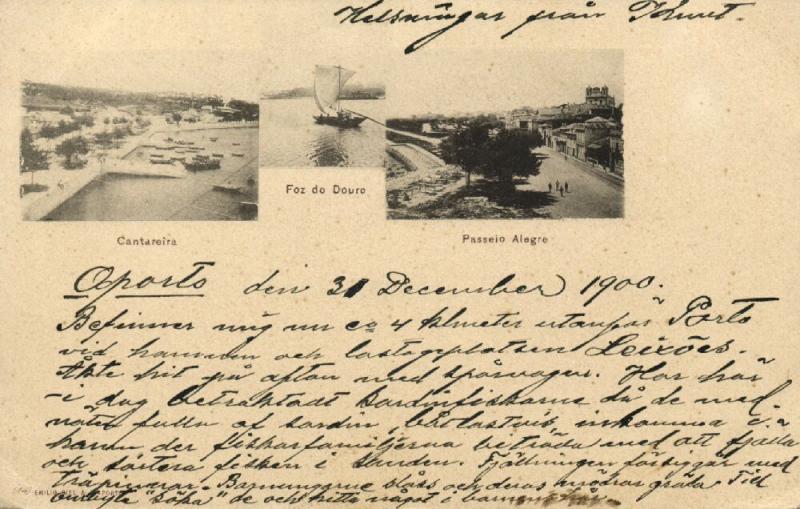 Helsningar från Knut.
Foz do Douro
Cantareira
Passeio Alegre
Oporto den 31 December 1900.
Befinner mig nu ca 4 kilometer utanför Porto
vid hamnen och lastageplatsen Leixões.
Åkte hit på afton med spårvagn. Har här
i dag betraktadt sardinfiskarne då de med
näten fulla af sardin, båtlastvis, inkomma
hamn der fiskarfamiljerna beträda med att fjälla
och sortera fisken i sanden. Fjällningen försiggår med
träpinnar. Barnungarne slåss och deras mödrar gräla. Till
"söka" de och hitta något i
EMILIO BIEL & PORTO